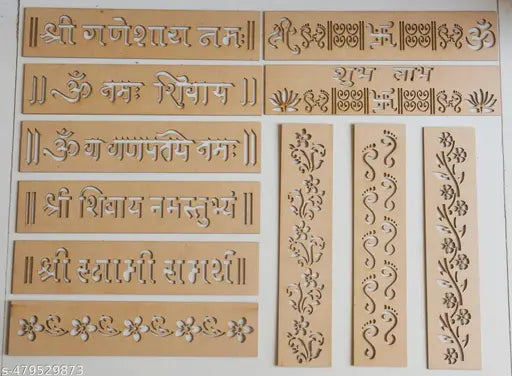 ॥ श्री गणेशाय नमः ॥
॥ ॐ नमः शिवाय ॥
॥ ॐ ग गणपतये नमः ॥
॥ श्री शिवाय नमस्तुभ्यं ॥
॥ श्री स्वामी समर्थ ॥
श्री 卐 ॐ
शुभ लाभ
卐
s-479529873